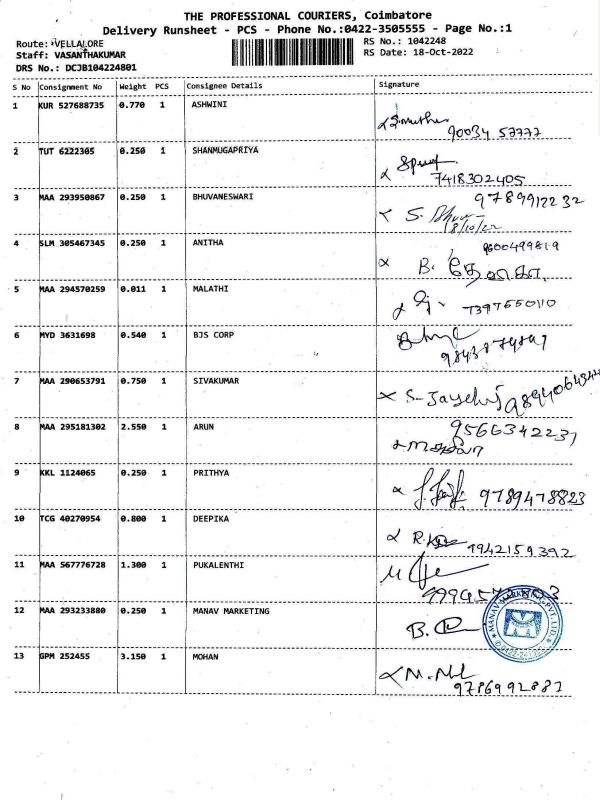 THE PROFESSIONAL COURIERS, Coimbatore
Delivery Runsheet - PCS - Phone No.:0422-3505555 - Page No.:1
Route: VELLALORE
RS No.: 1042248
Staff: VASANTHAKUMAR
RS Date: 18-Oct-2022
DRS No.: DCJB104224801
S No Consignment No Weight PCS Consignee Details Signature
1 KUR 527688735 0.770 1 ASHWINI
90034 57777
2 TUT 6222305 0.250 1 SHANMUGAPRIYA
7418302405
3 MAA 293950867 0.250 1 BHUVANESWARI 9789912232
S.
18/10/22
4 SLM 305467345 0.250 1 ANITHA 9600499819
B.
5 MAA 294570259 0.011 1 MALATHI
7397550110
6 MYD 3631698 0.540 1 BJS CORP
7 MAA 290653791 0.750 1 SIVAKUMAR
8 MAA 295181302 2.550 1 ARUN 9566342237
9 KKL 1124065 0.250 1 PRITHYA
9789478823
10 TCG 40270954 0.800 1 DEEPIKA
9942159392
11 MAA 567776728 1.300 1 PUKALENTHI
12 MAA 293233880 0.250 1 MANAV MARKETING
B.
MANAV MARKETING PVT. LTD.
13 GPM 252455 3.150 1 MOHAN